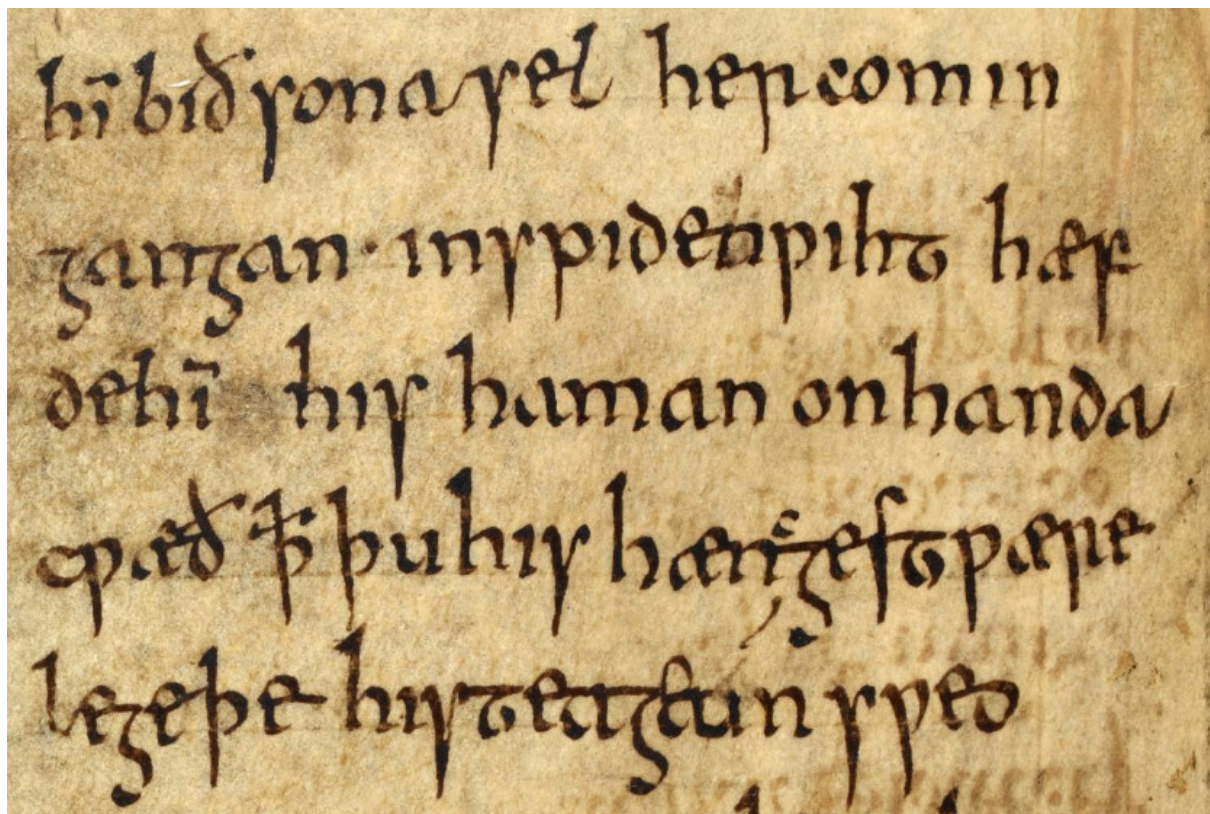 hī bið sona sel her com in
gangan · inspiden ƿiht hæf
de hī his haman onhanda
cƿæð ꝥ þu his hængest ƿære
legeþe his teagean sƿeo